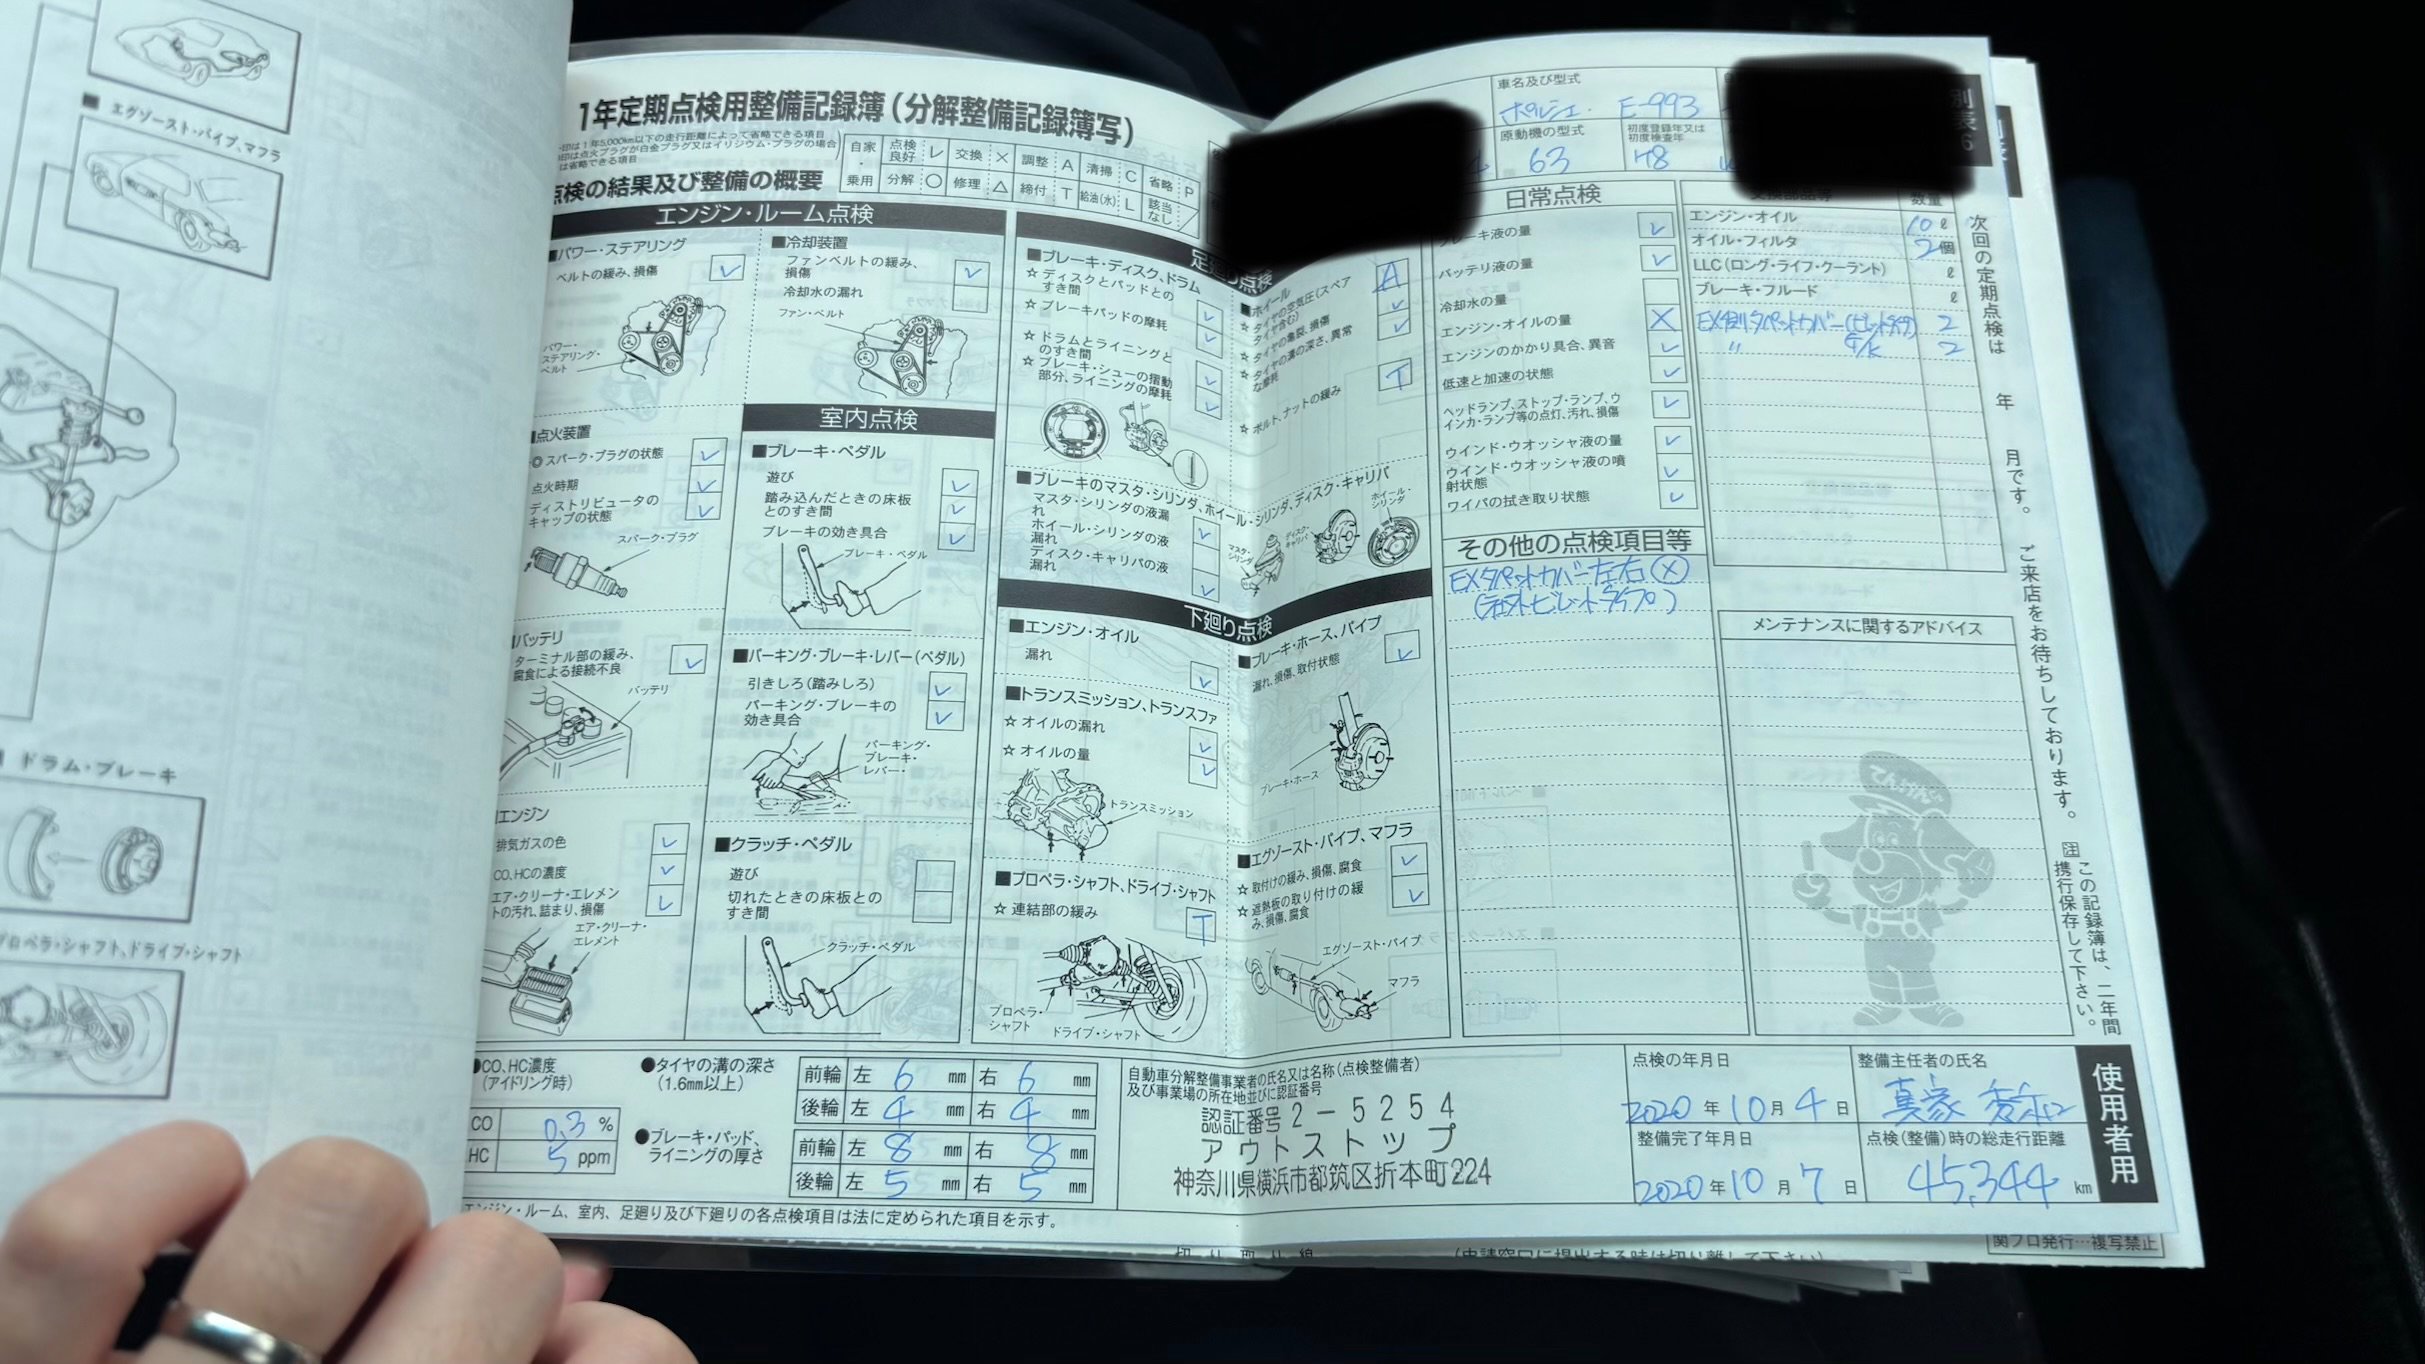 エグゾースト・パイプ、マフラ
ドラム・ブレーキ
プロペラ・シャフト、ドライブ・シャフト
1年定期点検用整備記録簿(分解整備記録簿写)
印は1年5,000km以下の走行距離によって省略できる項目
印は点火プラグが白金プラグ又はイリジウム・プラグの場合
は省略できる項目
点検の結果及び整備の概要
自家・乗用
点検良好 レ 交換 × 調整 A 清掃 C 省略 P
分解 ○ 修理 △ 締付 T 給油(水) L 該当なし /
エンジン・ルーム点検
■パワー・ステアリング
ベルトの緩み、損傷
パワー・ステアリング・ベルト
■冷却装置
ファンベルトの緩み、損傷
冷却水の漏れ
ファン・ベルト
■点火装置
◎スパーク・プラグの状態
点火時期
ディストリビュータのキャップの状態
スパーク・プラグ
バッテリ
ターミナル部の緩み、腐食による接続不良
バッテリ
エンジン
排気ガスの色
CO、HCの濃度
エア・クリーナ・エレメントの汚れ、詰まり、損傷
エア・クリーナ・エレメント
室内点検
■ブレーキ・ペダル
遊び
踏み込んだときの床板とのすき間
ブレーキの効き具合
ブレーキ・ペダル
■パーキング・ブレーキ・レバー(ペダル)
引きしろ(踏みしろ)
パーキング・ブレーキの効き具合
パーキング・ブレーキ・レバー
■クラッチ・ペダル
遊び
切れたときの床板とのすき間
クラッチ・ペダル
足廻り点検
■ブレーキ・ディスク、ドラム
☆ディスクとパッドとのすき間
☆ブレーキパッドの摩耗
☆ドラムとライニングとのすき間
☆ブレーキ・シューの摺動部分、ライニングの摩耗
■ホイール
☆タイヤの空気圧(スペアタイヤ含む) A
☆タイヤの亀裂、損傷
☆タイヤの溝の深さ、異常な摩耗
☆ボルト、ナットの緩み T
■ブレーキのマスタ・シリンダ、ホイール・シリンダ、ディスク・キャリパ
マスタ・シリンダの液漏れ
ホイール・シリンダの液漏れ
ディスク・キャリパの液漏れ
マスタ・シリンダ
ディスク・キャリパ
ホイール・シリンダ
下廻り点検
■エンジン・オイル
漏れ
■トランスミッション、トランスファ
☆オイルの漏れ
☆オイルの量
トランスミッション
■プロペラ・シャフト、ドライブ・シャフト
☆連結部の緩み T
プロペラ・シャフト
ドライブ・シャフト
■ブレーキ・ホース、パイプ
漏れ、損傷、取付状態
ブレーキ・ホース
■エグゾースト・パイプ、マフラ
☆取付けの緩み、損傷、腐食
☆遮熱板の取り付けの緩み、損傷、腐食
エグゾースト・パイプ
マフラ
車名及び型式
ポルシェ E-993
原動機の型式
63
初度登録年又は初度検査年
H8
別表6
日常点検
ブレーキ液の量
バッテリ液の量
冷却水の量
エンジン・オイルの量 ×
エンジンのかかり具合、異音
低速と加速の状態
ヘッドランプ、ストップ・ランプ、ウインカ・ランプ等の点灯、汚れ、損傷
ウインド・ウオッシャ液の量
ウインド・ウオッシャ液の噴射状態
ワイパの拭き取り状態
その他の点検項目等
EXタペットカバー左右 ⓧ
交換部品等 数量
エンジン・オイル 10 ℓ
オイル・フィルタ 2 個
LLC(ロング・ライフ・クーラント) ℓ
ブレーキ・フルード ℓ
EX側タペットカバー(ビレットタイプ) 2
〃 G/K 2
メンテナンスに関するアドバイス
てんけんくん
次回の定期点検は 年 月です。ご来店をお待ちしております。
注 この記録簿は、二年間携行保存して下さい。
●CO、HC濃度
(アイドリング時)
CO 0.3 %
HC 5 ppm
●タイヤの溝の深さ
(1.6mm以上)
前輪 左 6 mm 右 6 mm
後輪 左 4 mm 右 4 mm
●ブレーキ・パッド、ライニングの厚さ
前輪 左 8 mm 右 8 mm
後輪 左 5 mm 右 5 mm
自動車分解整備事業者の氏名又は名称(点検整備者)
及び事業場の所在地並びに認証番号
認証番号2-5254
アウトストップ
神奈川県横浜市都筑区折本町224
点検の年月日
2020 年 10 月 4 日
整備完了年月日
2020 年 10 月 7 日
整備主任者の氏名
点検(整備)時の総走行距離
45,344 km
使用者用
エンジン・ルーム、室内、足廻り及び下廻りの各点検項目は法に定められた項目を示す。
切り取り線
(申請窓口に提出する時は切り離して下さい)
関プロ発行…複写禁止